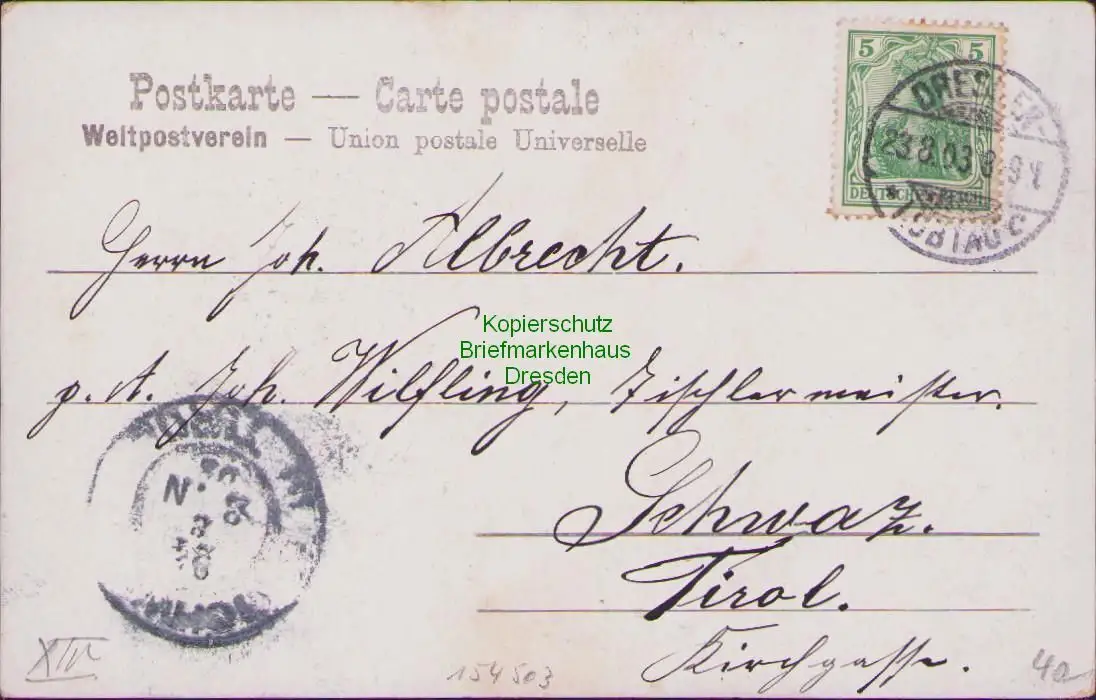 Postkarte — Carte postale
Weltpostverein — Union postale Universelle
5 5
DEUTSCHES REICH
DRESDEN-
23.8.03 8-9V
LÖBTAU C
Herrn Joh. Albrecht.
p. A. Joh. Wilfling, Tischlermeister.
Kopierschutz
Briefmarkenhaus
Dresden
Schwaz.
Tirol.
Kirchgasse.
XIII
154503
40